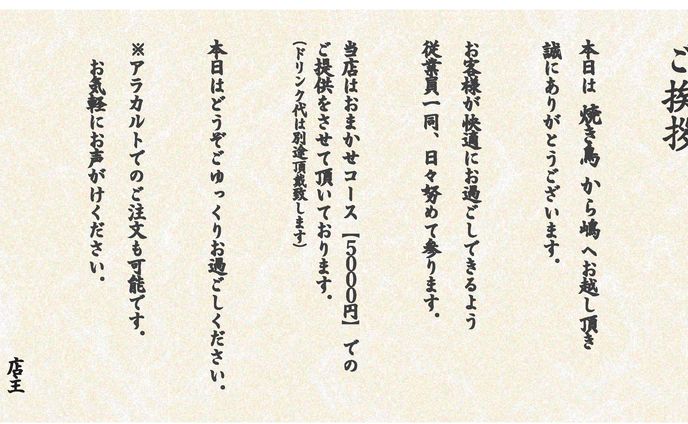 ご挨拶
本日は 焼き鳥 から嶋 へお越し頂き
誠にありがとうございます。
お客様が快適にお過ごしできるよう
従業員一同、日々努めて参ります。
当店はおまかせコース【5000円】での
ご提供をさせて頂いております。
(ドリンク代は別途頂戴致します)
本日はどうぞごゆっくりお過ごしください。
※アラカルトでのご注文も可能です。
お気軽にお声がけください。
店主